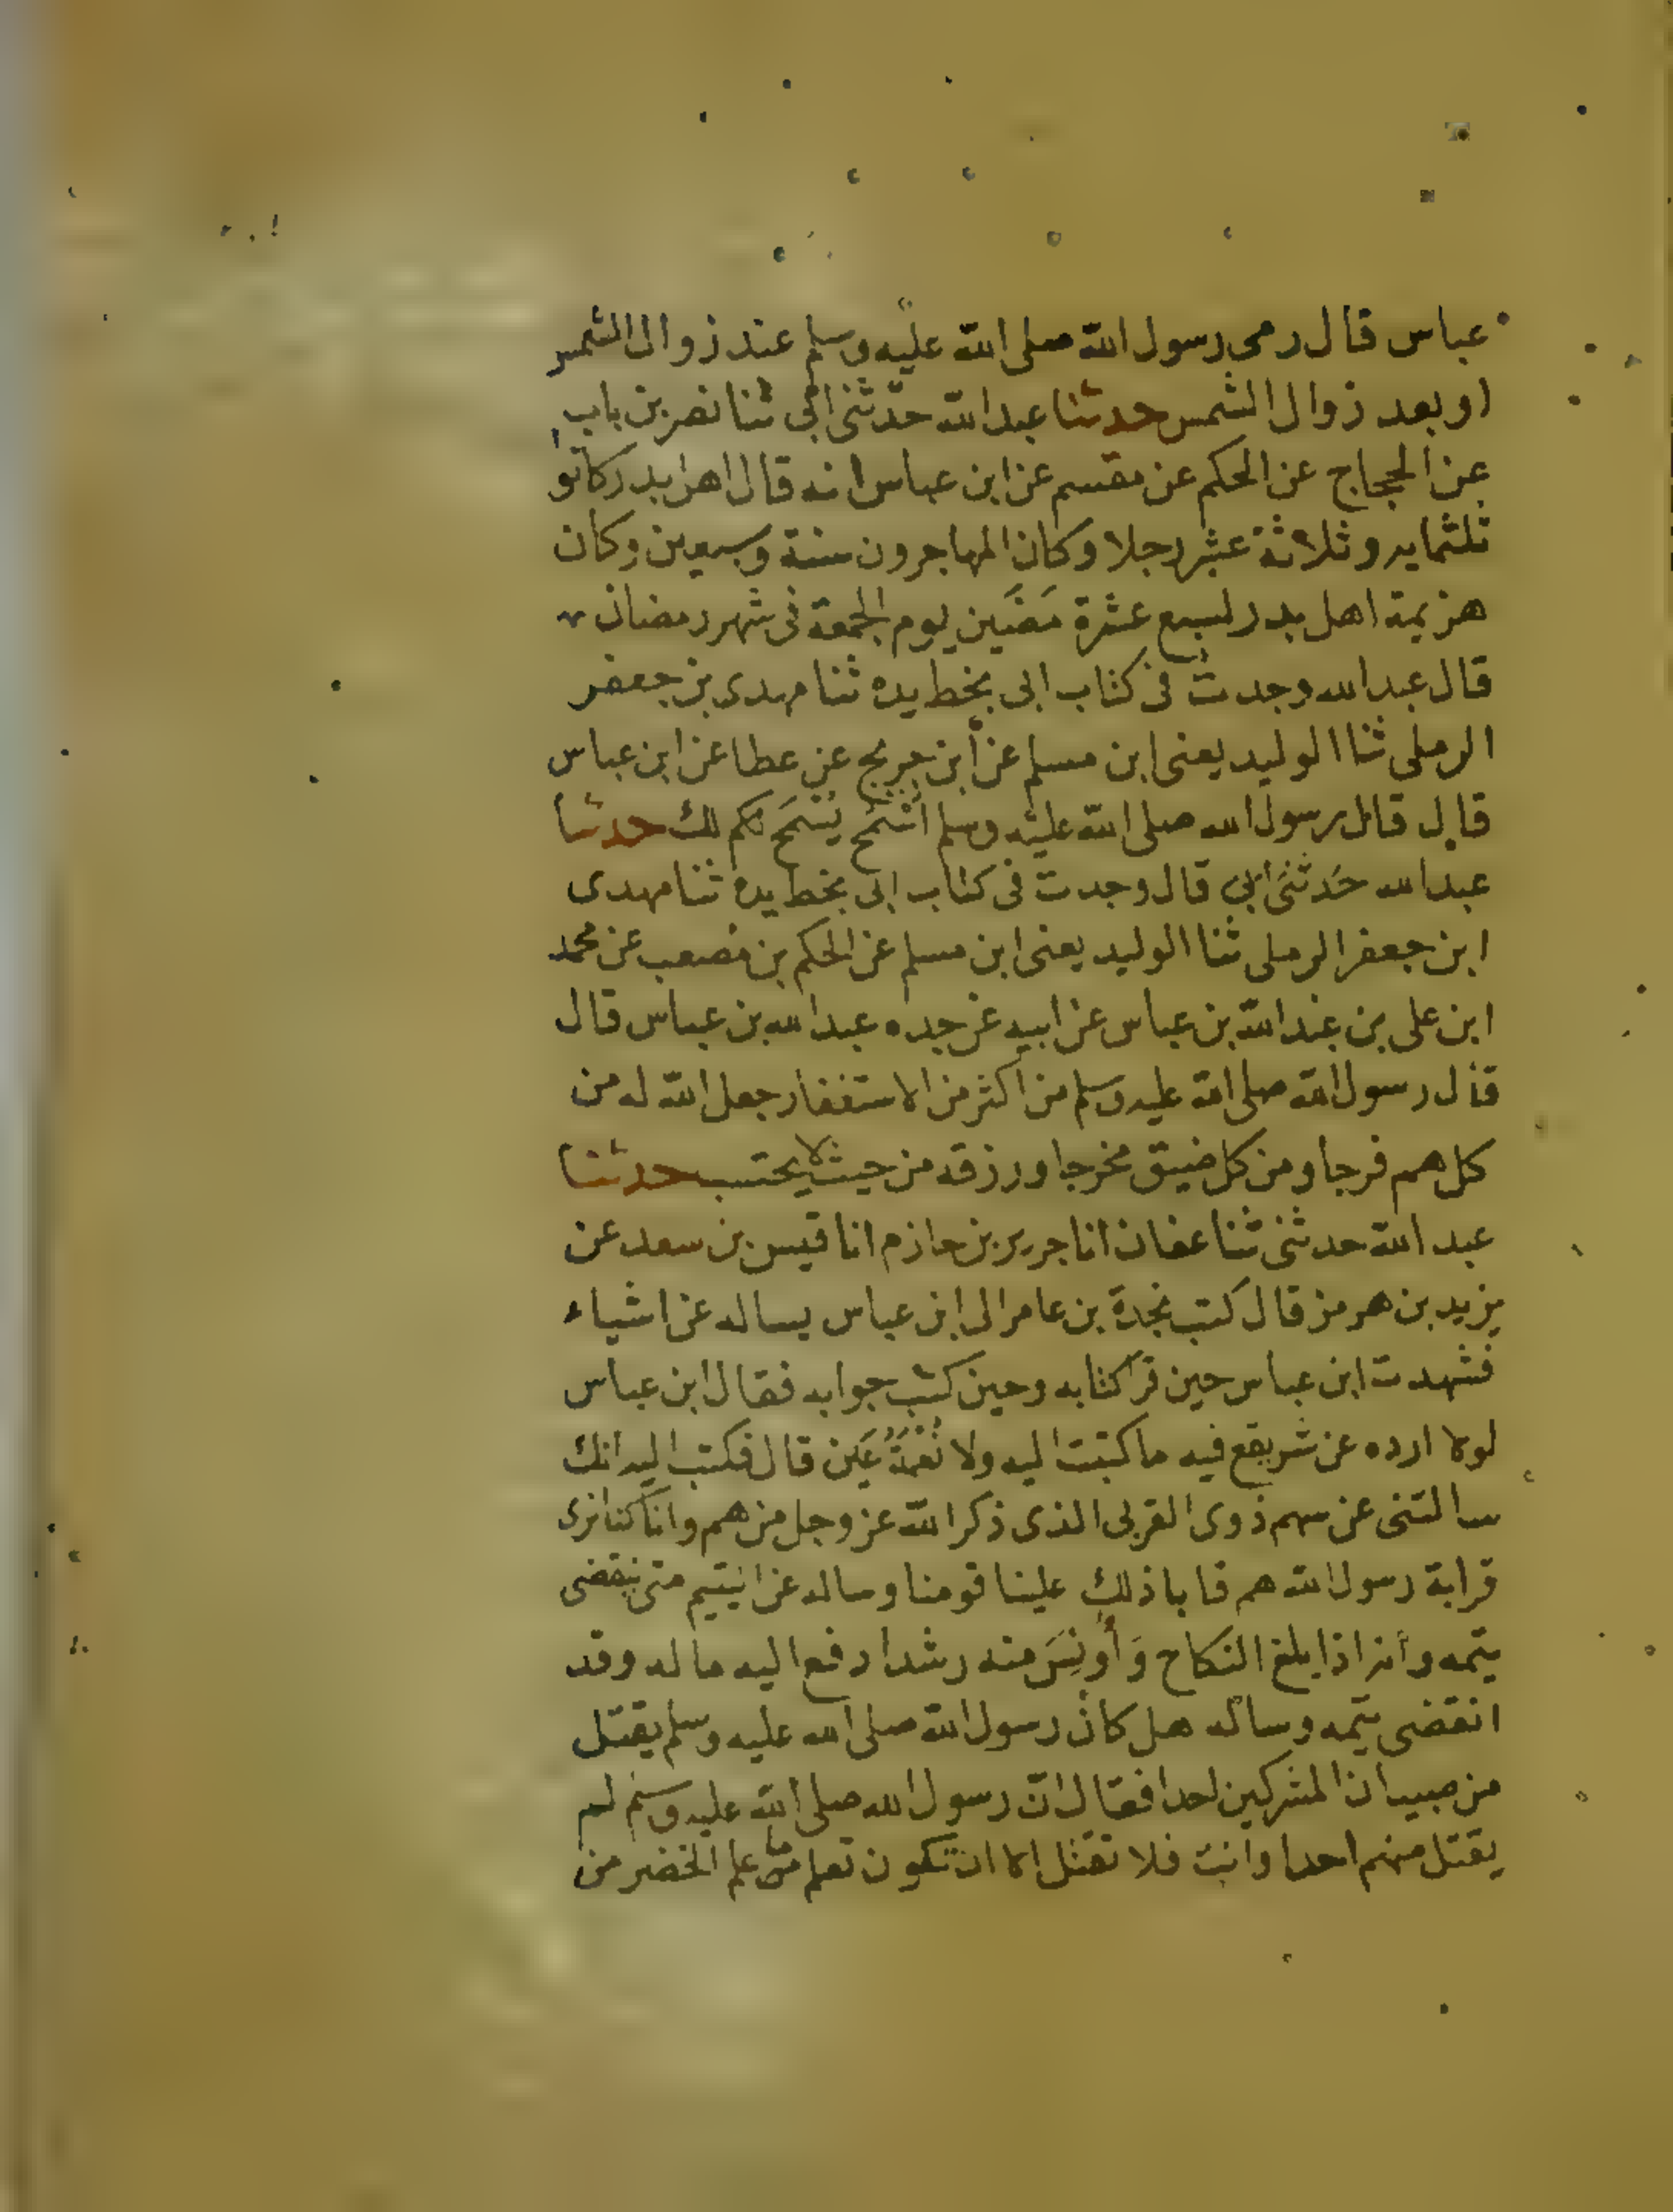 عباس قال رمى رسول الله صلى الله عليه وسلم عند زوال الشمس
او بعد زوال الشمس حدثنا عبد الله حدثنى ابى ثنا نصر بن باب
عن الحجاج عن الحكم عن مقسم عن ابن عباس انه قال اهل بدر كانوا
ثلثمايه وثلاثة عشر رجلا وكان المهاجرون ستة وسبعين وكان
هزيمة اهل بدر لسبع عشرة مَضَين يوم الجمعة فى شهر رمضان
قال عبد الله وجدت فى كتاب ابى بخط يده ثنا مهدى بن جعفر
الرملى ثنا الوليد يعنى ابن مسلم عن ابن جريج عن عطا عن ابن عباس
قال قال رسول الله صلى الله عليه وسلم اسْمَح يُسْمَح لك حدثنا
عبد الله حَدثنى ابى قال وجدت فى كتاب ابى بخط يده ثنا مهدى
ابن جعفر الرملى ثنا الوليد يعنى ابن مسلم عن الحكم بن مصعب عن محمد
ابن على بن عبد الله بن عباس عن ابيه عن جده عبد الله بن عباس قال
قال رسول الله صلى الله عليه وسلم من اكثر من الاستغفار جعل الله له من
كل هم فرجا ومن كل ضيق مخرجا ورزقه من حيث لا يحتسب حدثنا
عبد الله حدثنى ثنا عفان انا جرير بن حازم انا قيس بن سعد عن
يزيد بن هرمز قال كتب نجدة بن عامر الى ابن عباس يساله عن اشياء
فشهدت ابن عباس حين قرا كتابه وحين كتب جوابه فقال ابن عباس
لولا ارده عن شر يقع فيه ما كتبت اليه ولا نُعْمَةُ عَين قال فكتب اليه انك
سالتنى عن سهم ذوى القربى الذى ذكر الله عز وجل من هم وانا كنا نرى
قرابة رسول الله هم فابا ذلك علينا قومنا وساله عن اليتيم متى ينقضى
يتمه وانه اذا بلغ النكاح وَأُونِسَ منه رشدا دفع اليه ماله وقد
انقضى يتمه وساله هل كان رسول الله صلى الله عليه وسلم يقتل
من صبيان المشركين احدا فقال انّ رسول الله صلى الله عليه وسلم لم
يقتل منهم احدا وانت فلا تقتل الا ان تكون تعلم ما علم الخضر من